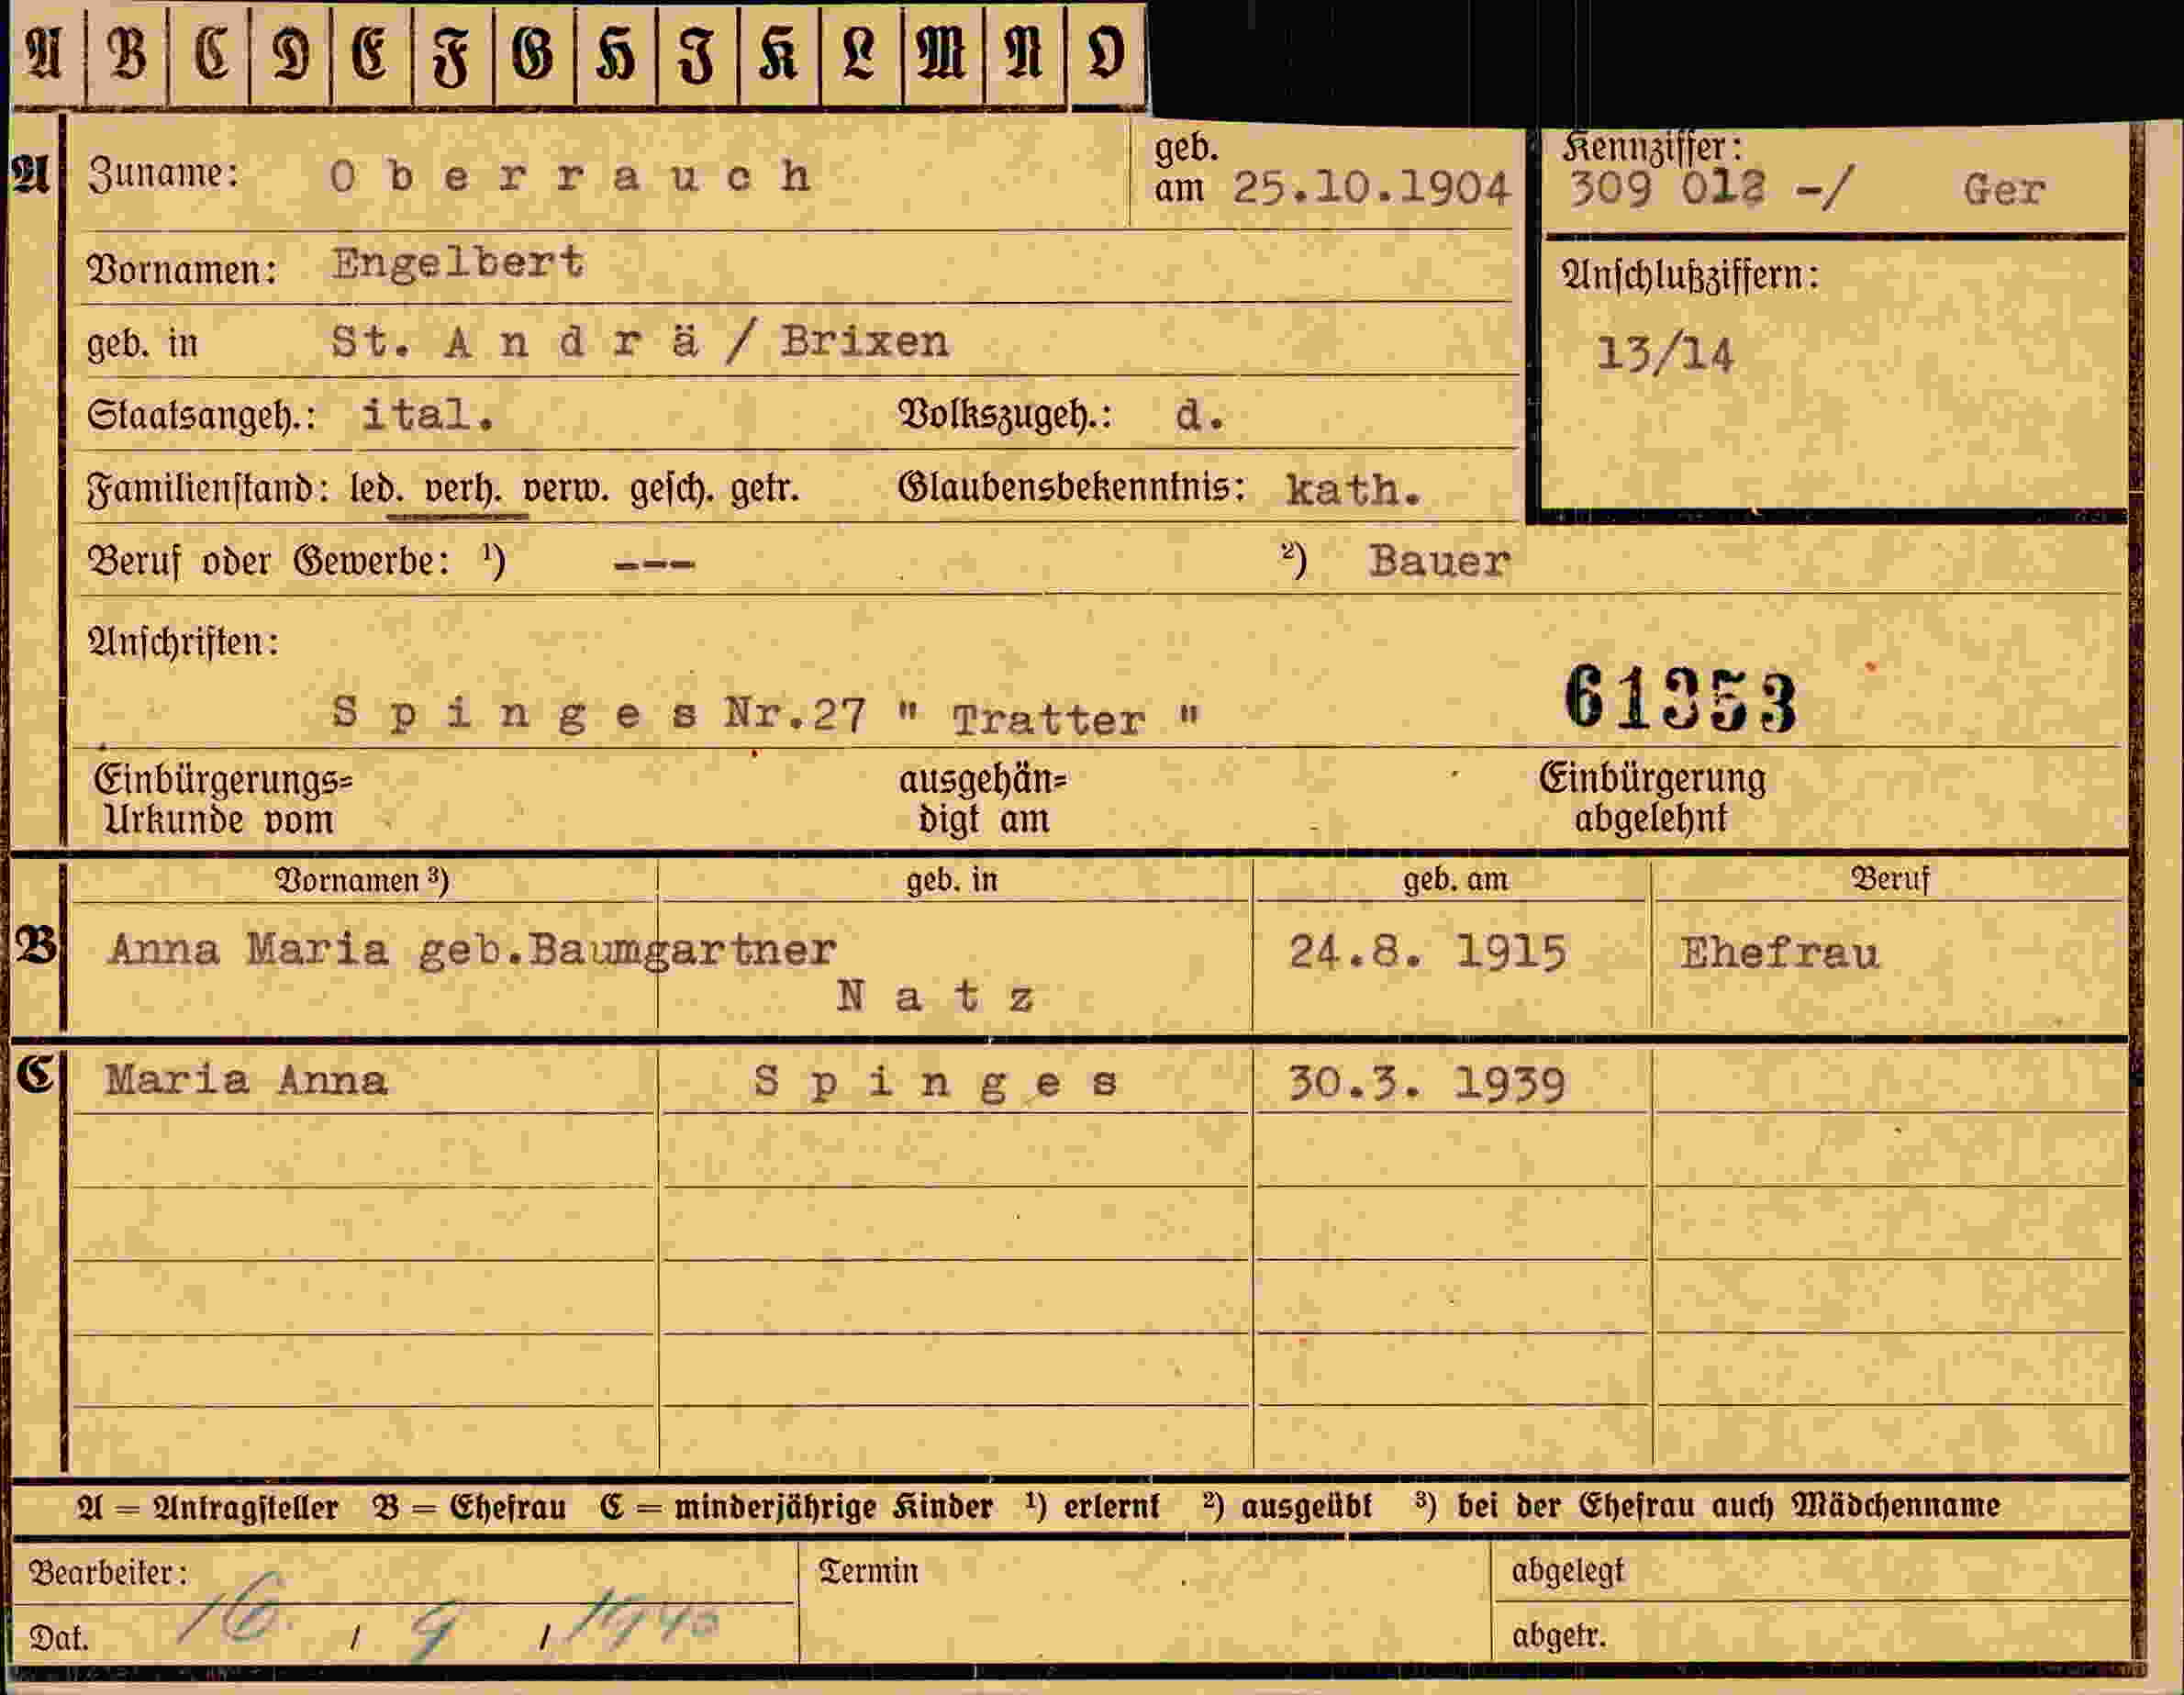 A B C D E F G H I K L M N O
A Zuname: O b e r r a u c h geb. am 25.10.1904
Kennziffer: 309 012 -/ Ger
Vornamen: Engelbert
Anschlußziffern:
geb. in St. A n d r ä / Brixen
13/14
Staatsangeh.: ital. Volkszugeh.: d.
Familienstand: led. verh. verw. gesch. getr. Glaubensbekenntnis: kath.
Beruf oder Gewerbe: ¹) --- ²) Bauer
Anschriften:
S p i n g e s Nr.27 " Tratter " 61353
Einbürgerungs= ausgehän= Einbürgerung
Urkunde vom digt am abgelehnt
Vornamen ³) geb. in geb. am Beruf
B Anna Maria geb.Baumgartner 24.8. 1915 Ehefrau
N a t z
C Maria Anna S p i n g e s 30.3. 1939
A = Antragsteller B = Ehefrau C = minderjährige Kinder ¹) erlernt ²) ausgeübt ³) bei der Ehefrau auch Mädchenname
Bearbeiter: Termin abgelegt
Dat. 16. / 9 / 1940 abgetr.